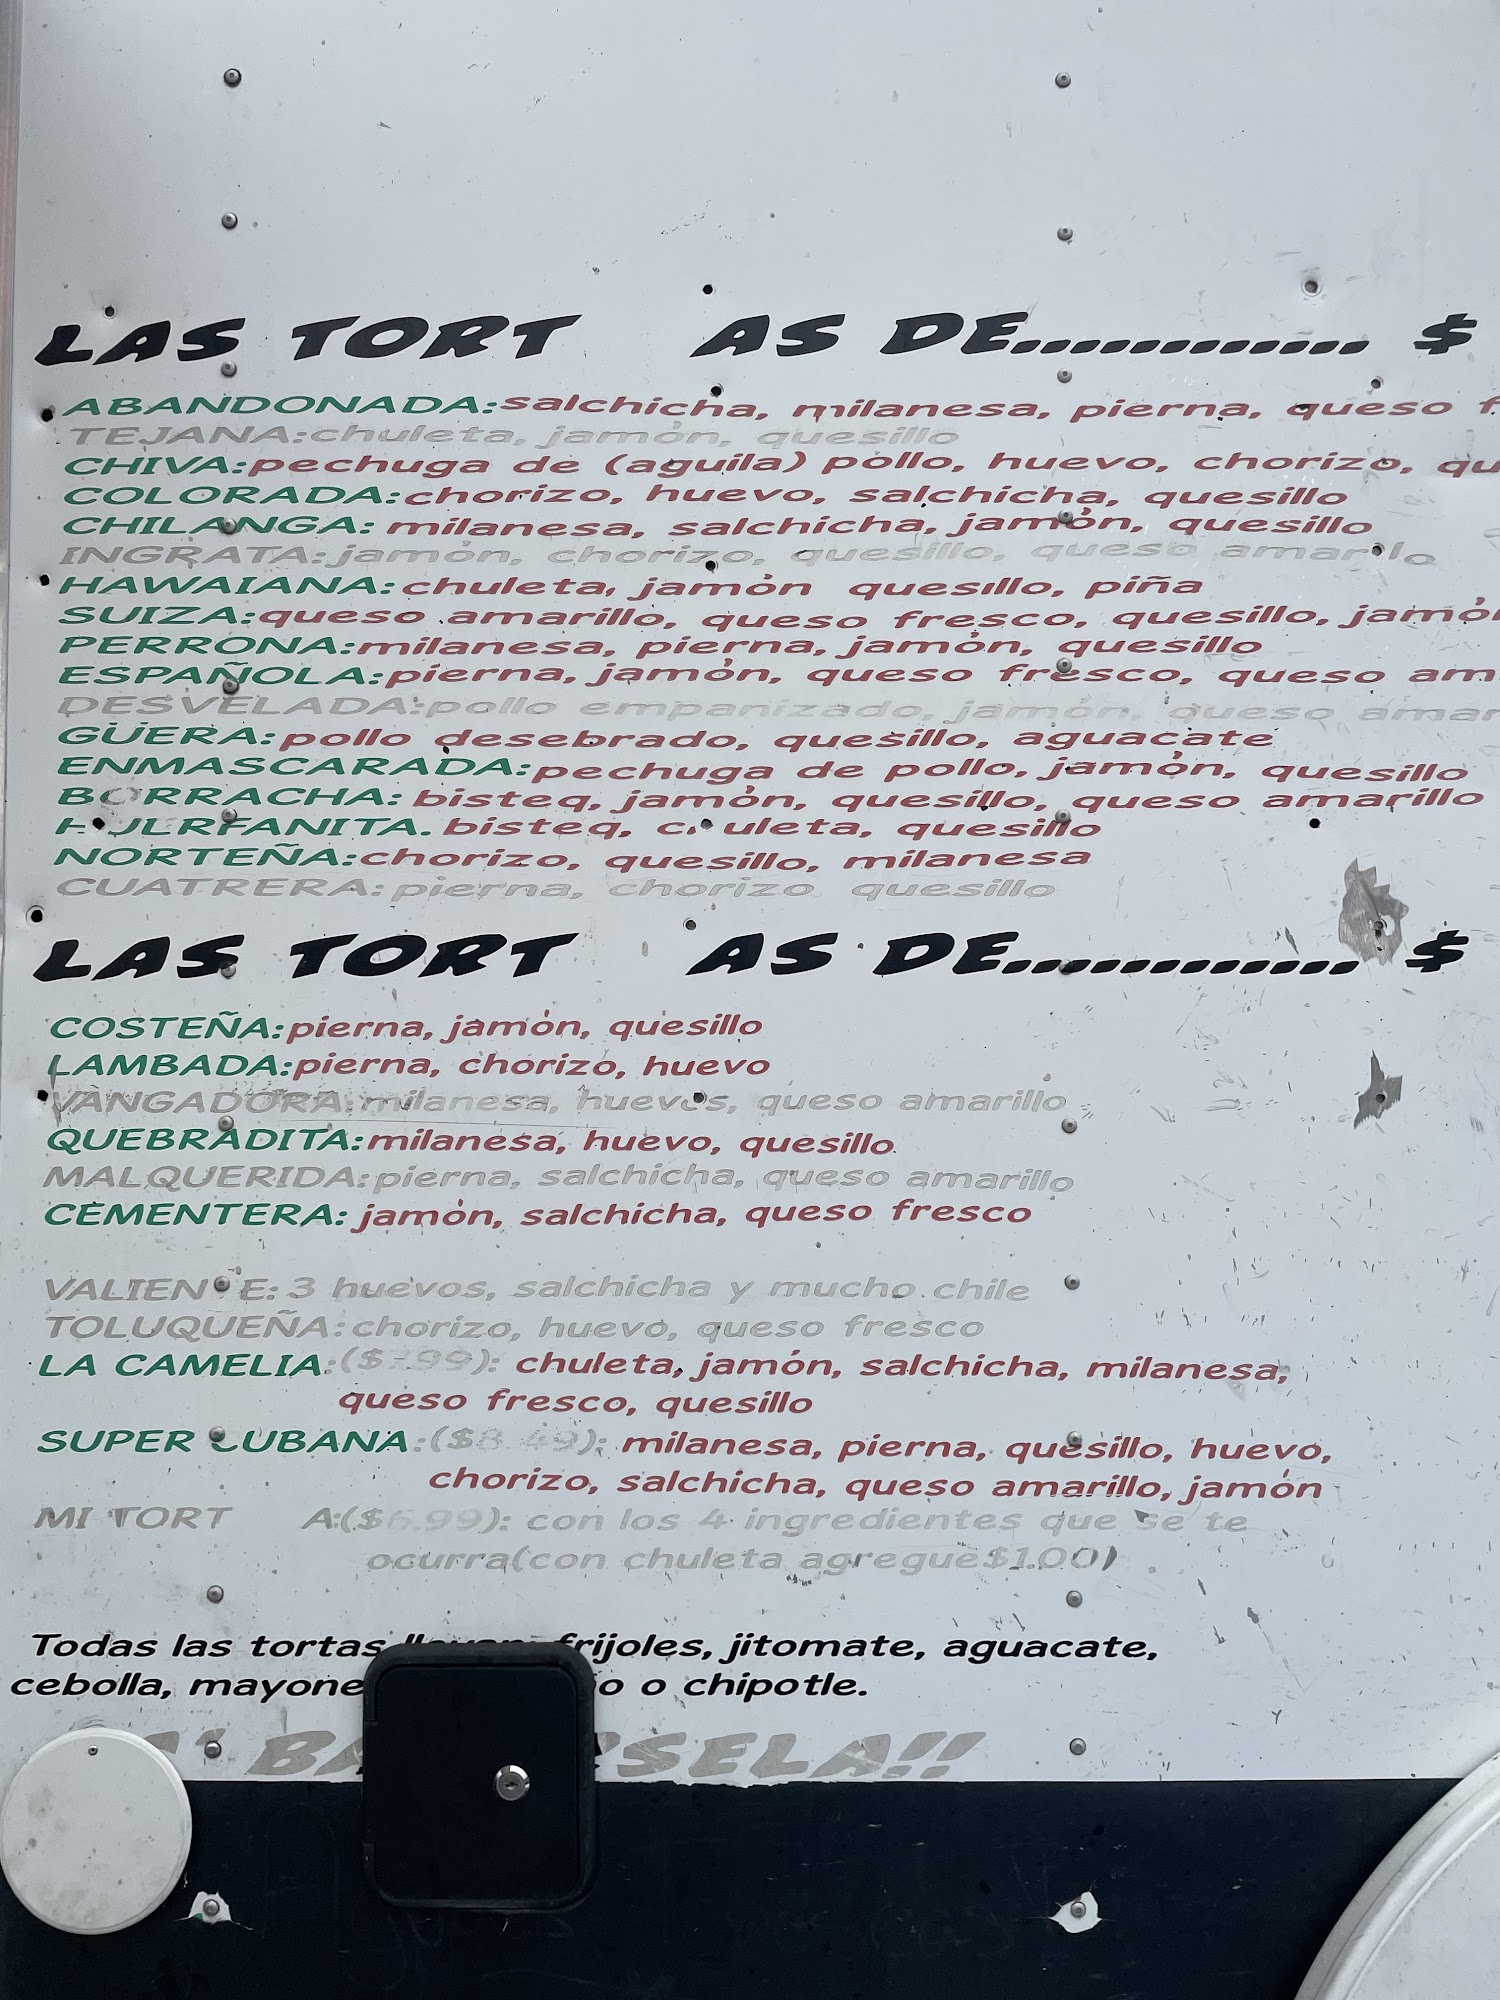 LAS TORT AS DE............ $
ABANDONADA:salchicha, milanesa, pierna, queso f
TEJANA:chuleta, jamón, quesillo
CHIVA:pechuga de (aguila) pollo, huevo, chorizo, qu
COLORADA:chorizo, huevo, salchicha, quesillo
CHILANGA: milanesa, salchicha, jamón, quesillo
INGRATA:jamón, chorizo, quesillo, queso amarillo
HAWAIANA:chuleta, jamón quesillo, piña
SUIZA:queso amarillo, queso fresco, quesillo, jamón
PERRONA:milanesa, pierna, jamón, quesillo
ESPAÑOLA:pierna, jamón, queso fresco, queso am
DESVELADA:pollo empanizado, jamón, queso amar
GÜERA:pollo desebrado, quesillo, aguacate
ENMASCARADA:pechuga de pollo, jamón, quesillo
BORRACHA: bisteq, jamón, quesillo, queso amarillo
HUERFANITA. bisteq, chuleta, quesillo
NORTEÑA:chorizo, quesillo, milanesa
CUATRERA:pierna, chorizo quesillo
LAS TORT AS DE............ $
COSTEÑA:pierna, jamón, quesillo
LAMBADA:pierna, chorizo, huevo
VANGADORA:milanesa, huevos, queso amarillo
QUEBRADITA:milanesa, huevo, quesillo
MALQUERIDA:pierna, salchicha, queso amarillo
CEMENTERA: jamón, salchicha, queso fresco
VALIEN E: 3 huevos, salchicha y mucho chile
TOLUQUEÑA:chorizo, huevo, queso fresco
LA CAMELIA:($ .99): chuleta, jamón, salchicha, milanesa,
queso fresco, quesillo
SUPER CUBANA:($8.49): milanesa, pierna, quesillo, huevo,
chorizo, salchicha, queso amarillo, jamón
MI TORT A:($6.99): con los 4 ingredientes que se te
ocurra(con chuleta agregue$1.00)
Todas las tortas llevan frijoles, jitomate, aguacate,
cebolla, mayone o o chipotle.
A' BA RSELA!!